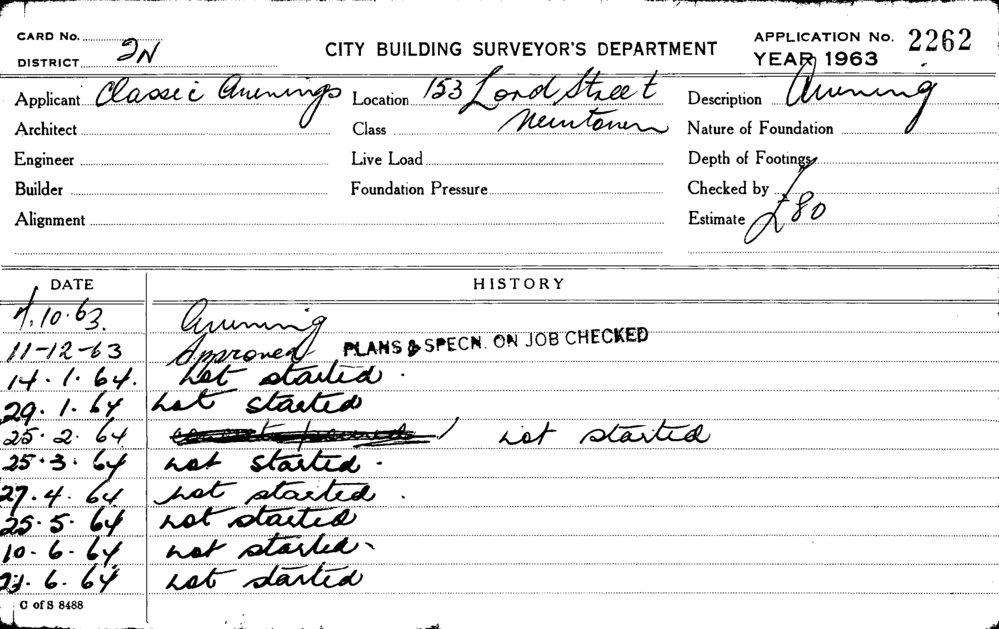 CARD No.
DISTRICT 2N
CITY BUILDING SURVEYOR'S DEPARTMENT
APPLICATION No. 2262
YEAR 1963
Applicant Classic Awnings Location 153 Lord Street Description Awning
Architect Class Newtown Nature of Foundation
Engineer Live Load Depth of Footings
Builder Foundation Pressure Checked by
Alignment Estimate £80
DATE HISTORY
7.10.63. Awning
11-12-63 Approved PLANS & SPECN. ON JOB CHECKED
14.1.64. Not started.
29.1.64 Not started
25.2.64 not started
25.3.64 not started.
27.4.64 not started.
25.5.64 not started
10-6-64 not started.
6.64 not started
C of S 8488